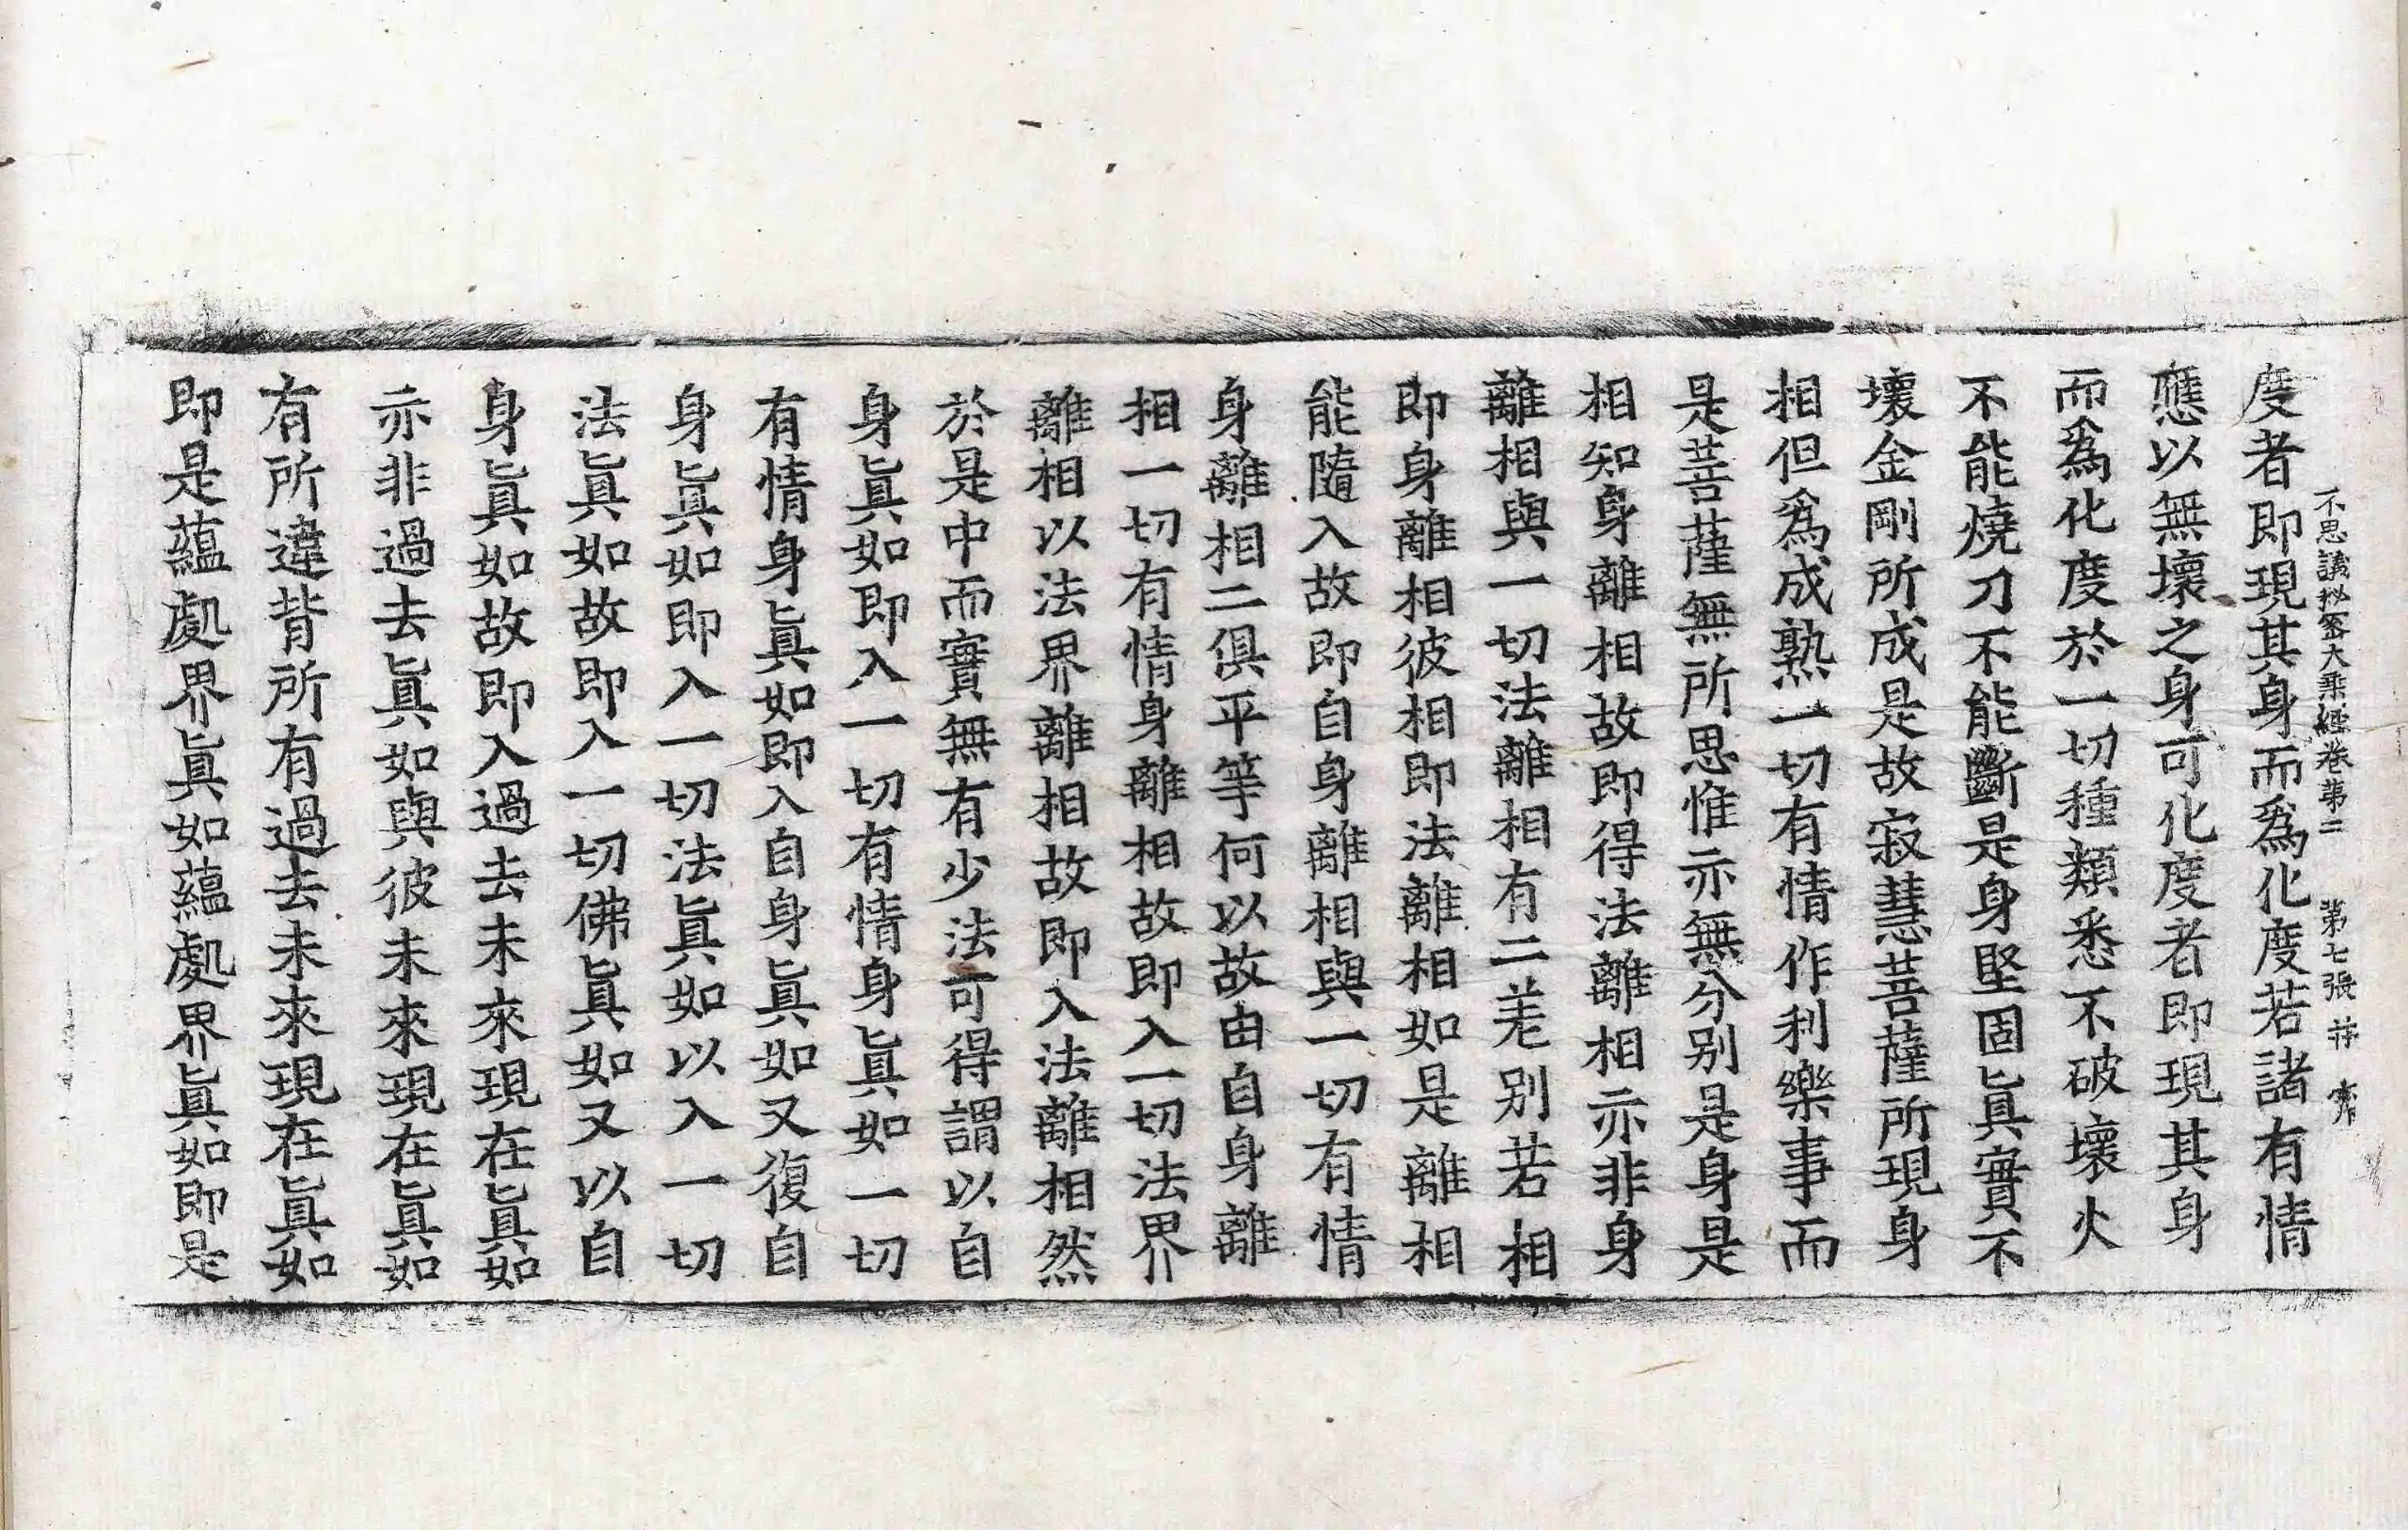 不思議祕密大乘經卷第二　第七張
度者即現其身而爲化度若諸有情
應以無壞之身可化度者即現其身
而爲化度於一切種類悉不破壞火
不能燒刀不能斷是身堅固眞實不
壞金剛所成是故寂慧菩薩所現身
相但爲成熟一切有情作利樂事而
是菩薩無所思惟亦無分别是身是
相知身離相故即得法離相亦非身
離相與一切法離相有二差别若相
即身離相彼相即法離相如是離相
能隨入故即自身離相與一切有情
身離相二俱平等何以故由自身離
相一切有情身離相故即入一切法界
離相以法界離相故即入法離相然
於是中而實無有少法可得謂以自
身眞如即入一切有情身眞如一切
有情身眞如即入自身眞如又復自
身眞如即入一切法眞如以入一切
法眞如故即入一切佛眞如又以自
身眞如故即入過去未來現在眞如
亦非過去眞如與彼未來現在眞如
有所違背所有過去未來現在眞如
即是蘊處界眞如蘊處界眞如即是